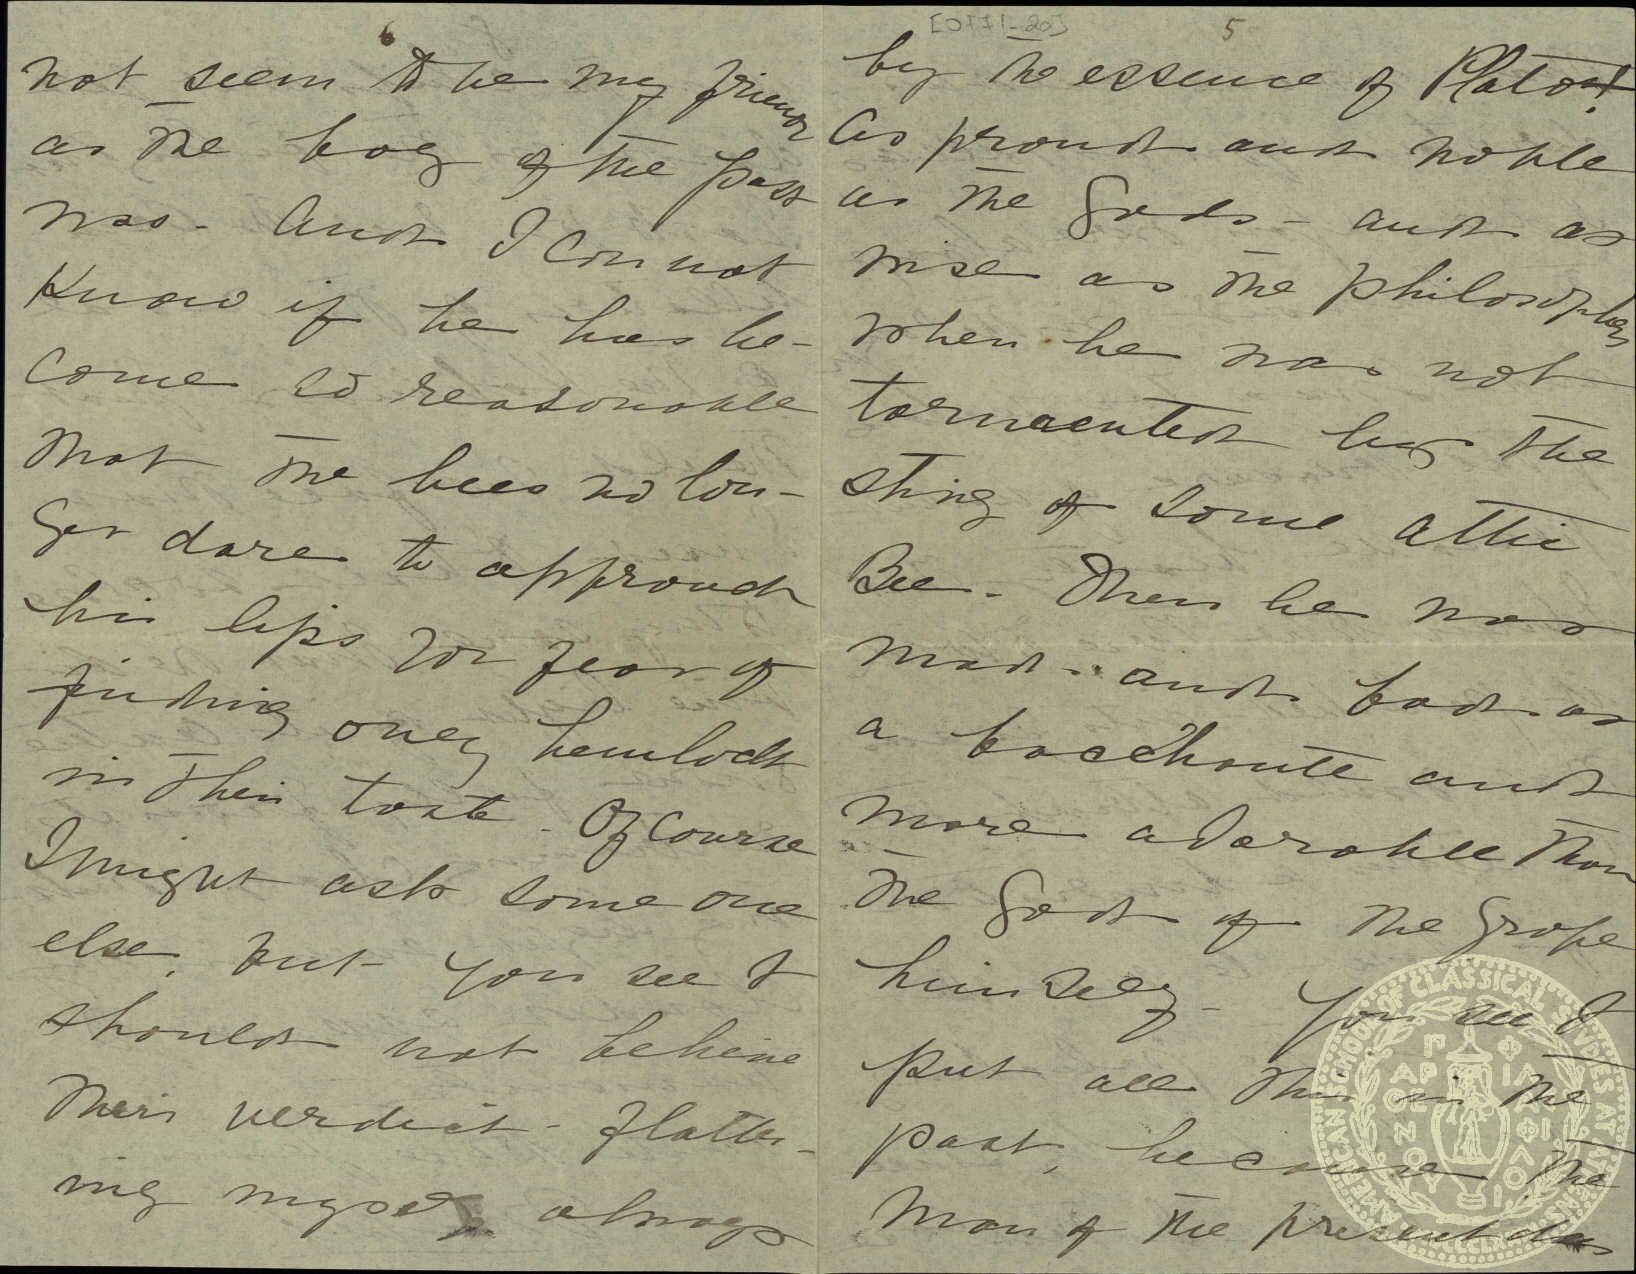 [0771-20]
5
by the essence of Platon!
As proud and noble
as the Gods - and as
wise as the philosopher
when he was not
tormented by the
sting of some attic
Bee. Then he was
mad. and bad as
a bacchante and
more adorable than
the God of the Grape
himself - You see I
put all this in the
past, because the
man of the present does
6
not seem to be my friend
as the boy of the past
was. And I can not
Know if he has be-
come so reasonable
that the bees no lon-
ger dare to approach
his lips for fear of
finding only hemlock
in their taste. Of course
I might ask some one
else, but you see I
should not believe
their verdict - flatter-
ing myself always
AMERICAN SCHOOL OF CLASSICAL STUDIES AT ATHENS